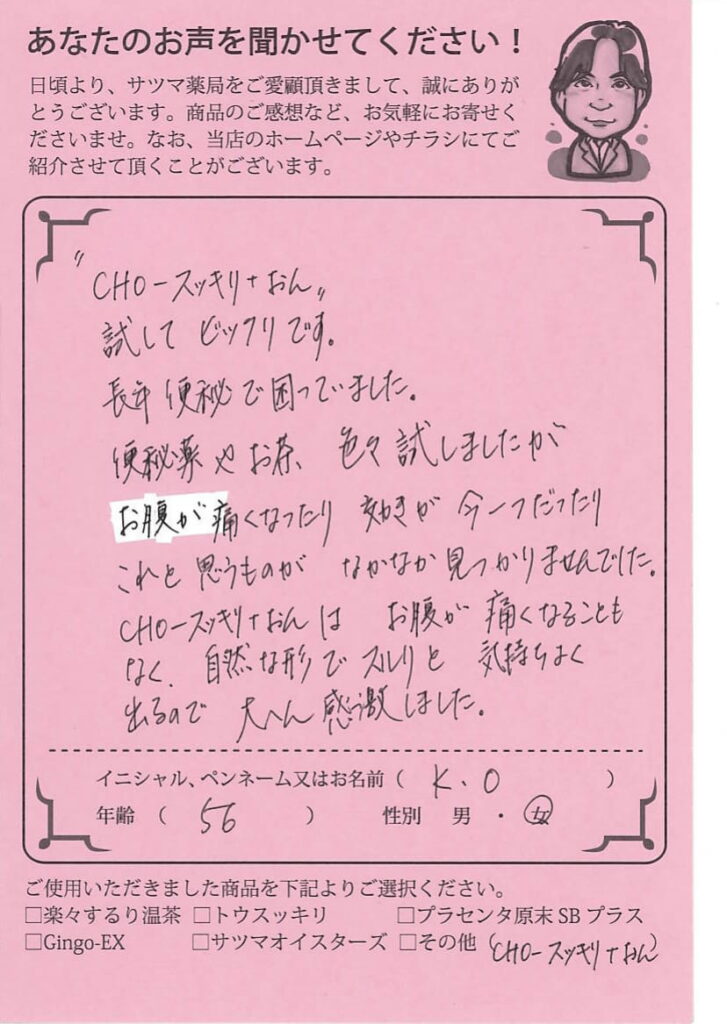 あなたのお声を聞かせてください！
日頃より、サツマ薬局をご愛顧頂きまして、誠にありが
とうございます。商品のご感想など、お気軽にお寄せく
ださいませ。なお、当店のホームページやチラシにてご
紹介させて頂くことがございます。
"CHO-スッキリ+おん"
試して ビックリです。
長年 便秘で困っていました。
便秘薬やお茶、色々試しましたが
お腹が痛くなったり 効きが 今一つだったり
これと思うものが なかなか見つかりませんでした。
CHO-スッキリ+おんは お腹が 痛くなることも
なく、自然な形で スルリと 気持ちよく
出るので 大へん感激しました。
イニシャル、ペンネーム又はお名前（ K.O ）
年齢 （ 56 ） 性別 男 ・ 女
ご使用いただきました商品を下記よりご選択ください。
□楽々するり温茶 □トウスッキリ □プラセンタ原末 SB プラス
□Gingo-EX □サツマオイスターズ □その他（CHO-スッキリ+おん）